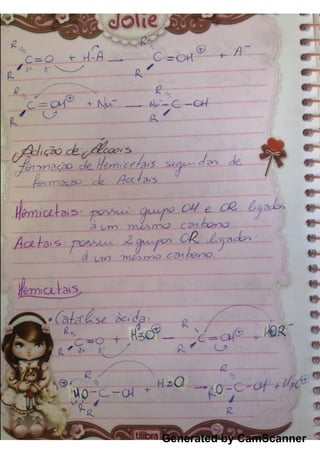 Jolie
R C=O + H-A — R C=OH⊕ + A⁻
R δ⁺ δ⁻ R
R R
C=OH⊕ + Nu⁻ — Nu-C-OH
R R
Adição de Álcoois
formação de Hemicetais seguidas de
formação de Acetais
Hemicetais: possui grupo OH e OR ligados
à um mesmo carbono
Acetais: possui 2 grupos OR ligados
à um mesmo carbono.
Hemicetais
• Catálise ácida:
R C=O + H₃O⊕ R C=OH⊕ + HOR
R δ⁺ δ⁻ R
R R
HO-C-OH + H₂O → RO-C-OH + H₃O⊕
R R R
tilibra
Generated by CamScanner